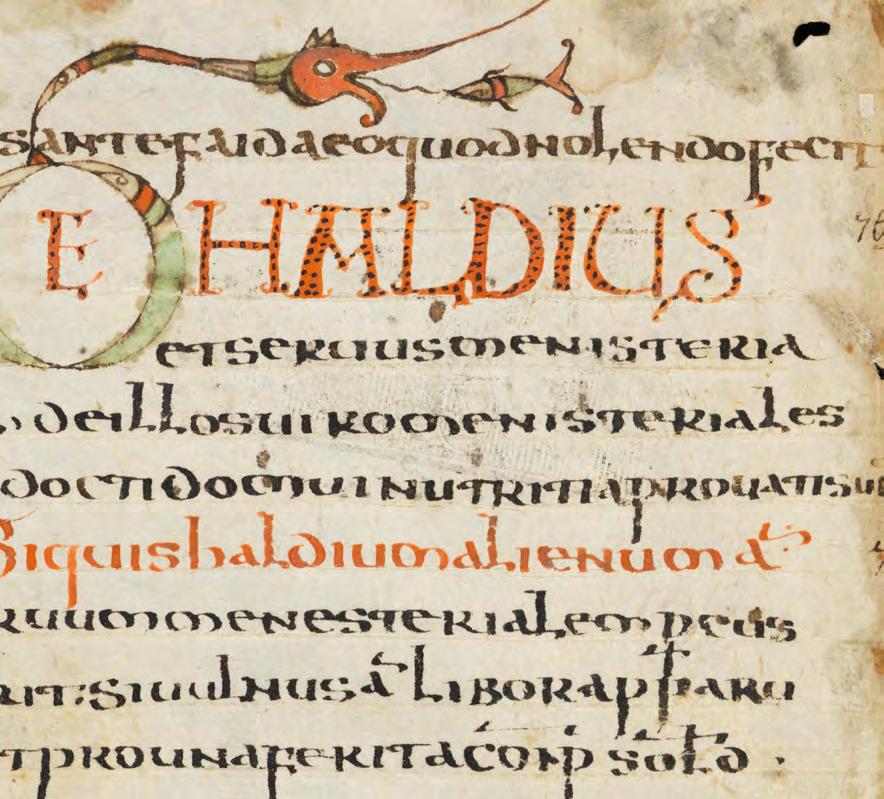 sante faida eo quod nolendo fecit
DE HALDIUS
et seruus menisteria
de illos uiro menisteriales
docti domui nutriti aprouatis
Si quis haldium alienum aᷝ
ruum menesterialem pcus
rit: si uulnus aᷝ libor apparu
t pro una ferita conp̄ sold ·